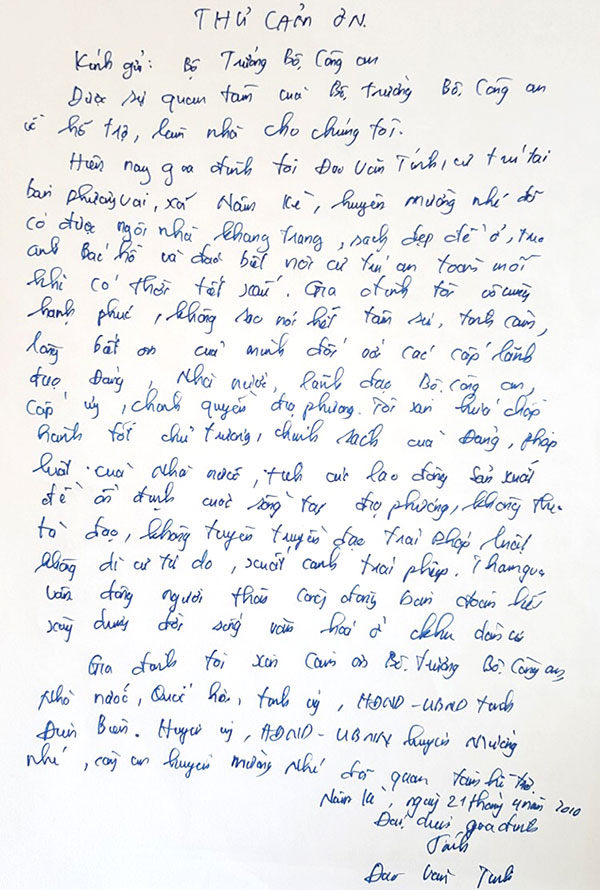 THƯ CẢM ƠN.
Kính gửi: Bộ Trưởng Bộ Công an
Được sự quan tâm của Bộ trưởng Bộ Công an
về hỗ trợ, làm nhà cho chúng tôi.
Hiện nay gia đình tôi Đao Văn Tính, cư trú tại
bản phương vai, xã Nậm Kè, huyện mường nhé đã
có được ngôi nhà khang trang, sạch đẹp để ở, treo
ảnh Bác hồ và đặc biệt nơi cư trú an toàn mỗi
khi có thời tiết xấu. Gia đình tôi vô cùng
hạnh phúc, không sao nói hết tâm sự, tình cảm,
lòng biết ơn của mình đối với các cấp lãnh
đạo Đảng, Nhà nước, lãnh đạo Bộ công an,
cấp ủy, chính quyền địa phương. Tôi xin hứa chấp
hành tốt chủ trương, chính sách của Đảng, pháp
luật của Nhà nước, tích cực lao động sản xuất
để ổn định cuộc sống tại địa phương, không theo
tà đạo, không tuyên truyền đạo trái pháp luật
không di cư tự do, xuất cảnh trái phép. Tham gia
vận động người thân cộng đồng bản đoàn kết
xây dựng đời sống văn hoá ở khu dân cư
Gia đình tôi xin cảm ơn Bộ Trưởng Bộ Công an,
Nhà nước, Quốc hội, tỉnh ủy, HĐND-UBND tỉnh
Điện Biên. Huyện ủy, HĐND-UBND huyện Mường
nhé, công an huyện mường nhé đã quan tâm hỗ trợ.
Nậm kè, ngày 21 tháng 4 năm 2020
Đại diện gia đình
Tính
Đao Văn Tính